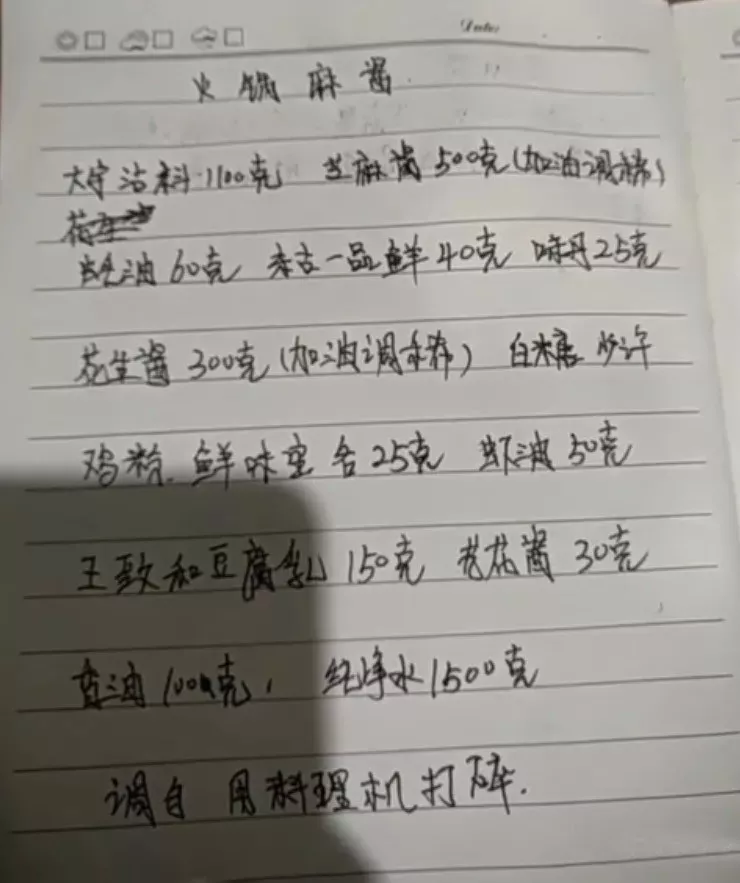 Date
火锅麻酱
大字沾料 1100克 芝麻酱 500克(加油调稀)
蚝油 60克 东古一品鲜 40克 味丹 25克
花生酱 300克(加油调稀) 白米唐 少许
鸡粉. 鲜味宝 各 25克 虾油 50克
王致和豆腐乳 150克 韭花酱 30克
香油 100克, 纯净水 1500克
调自 用料理机打碎.